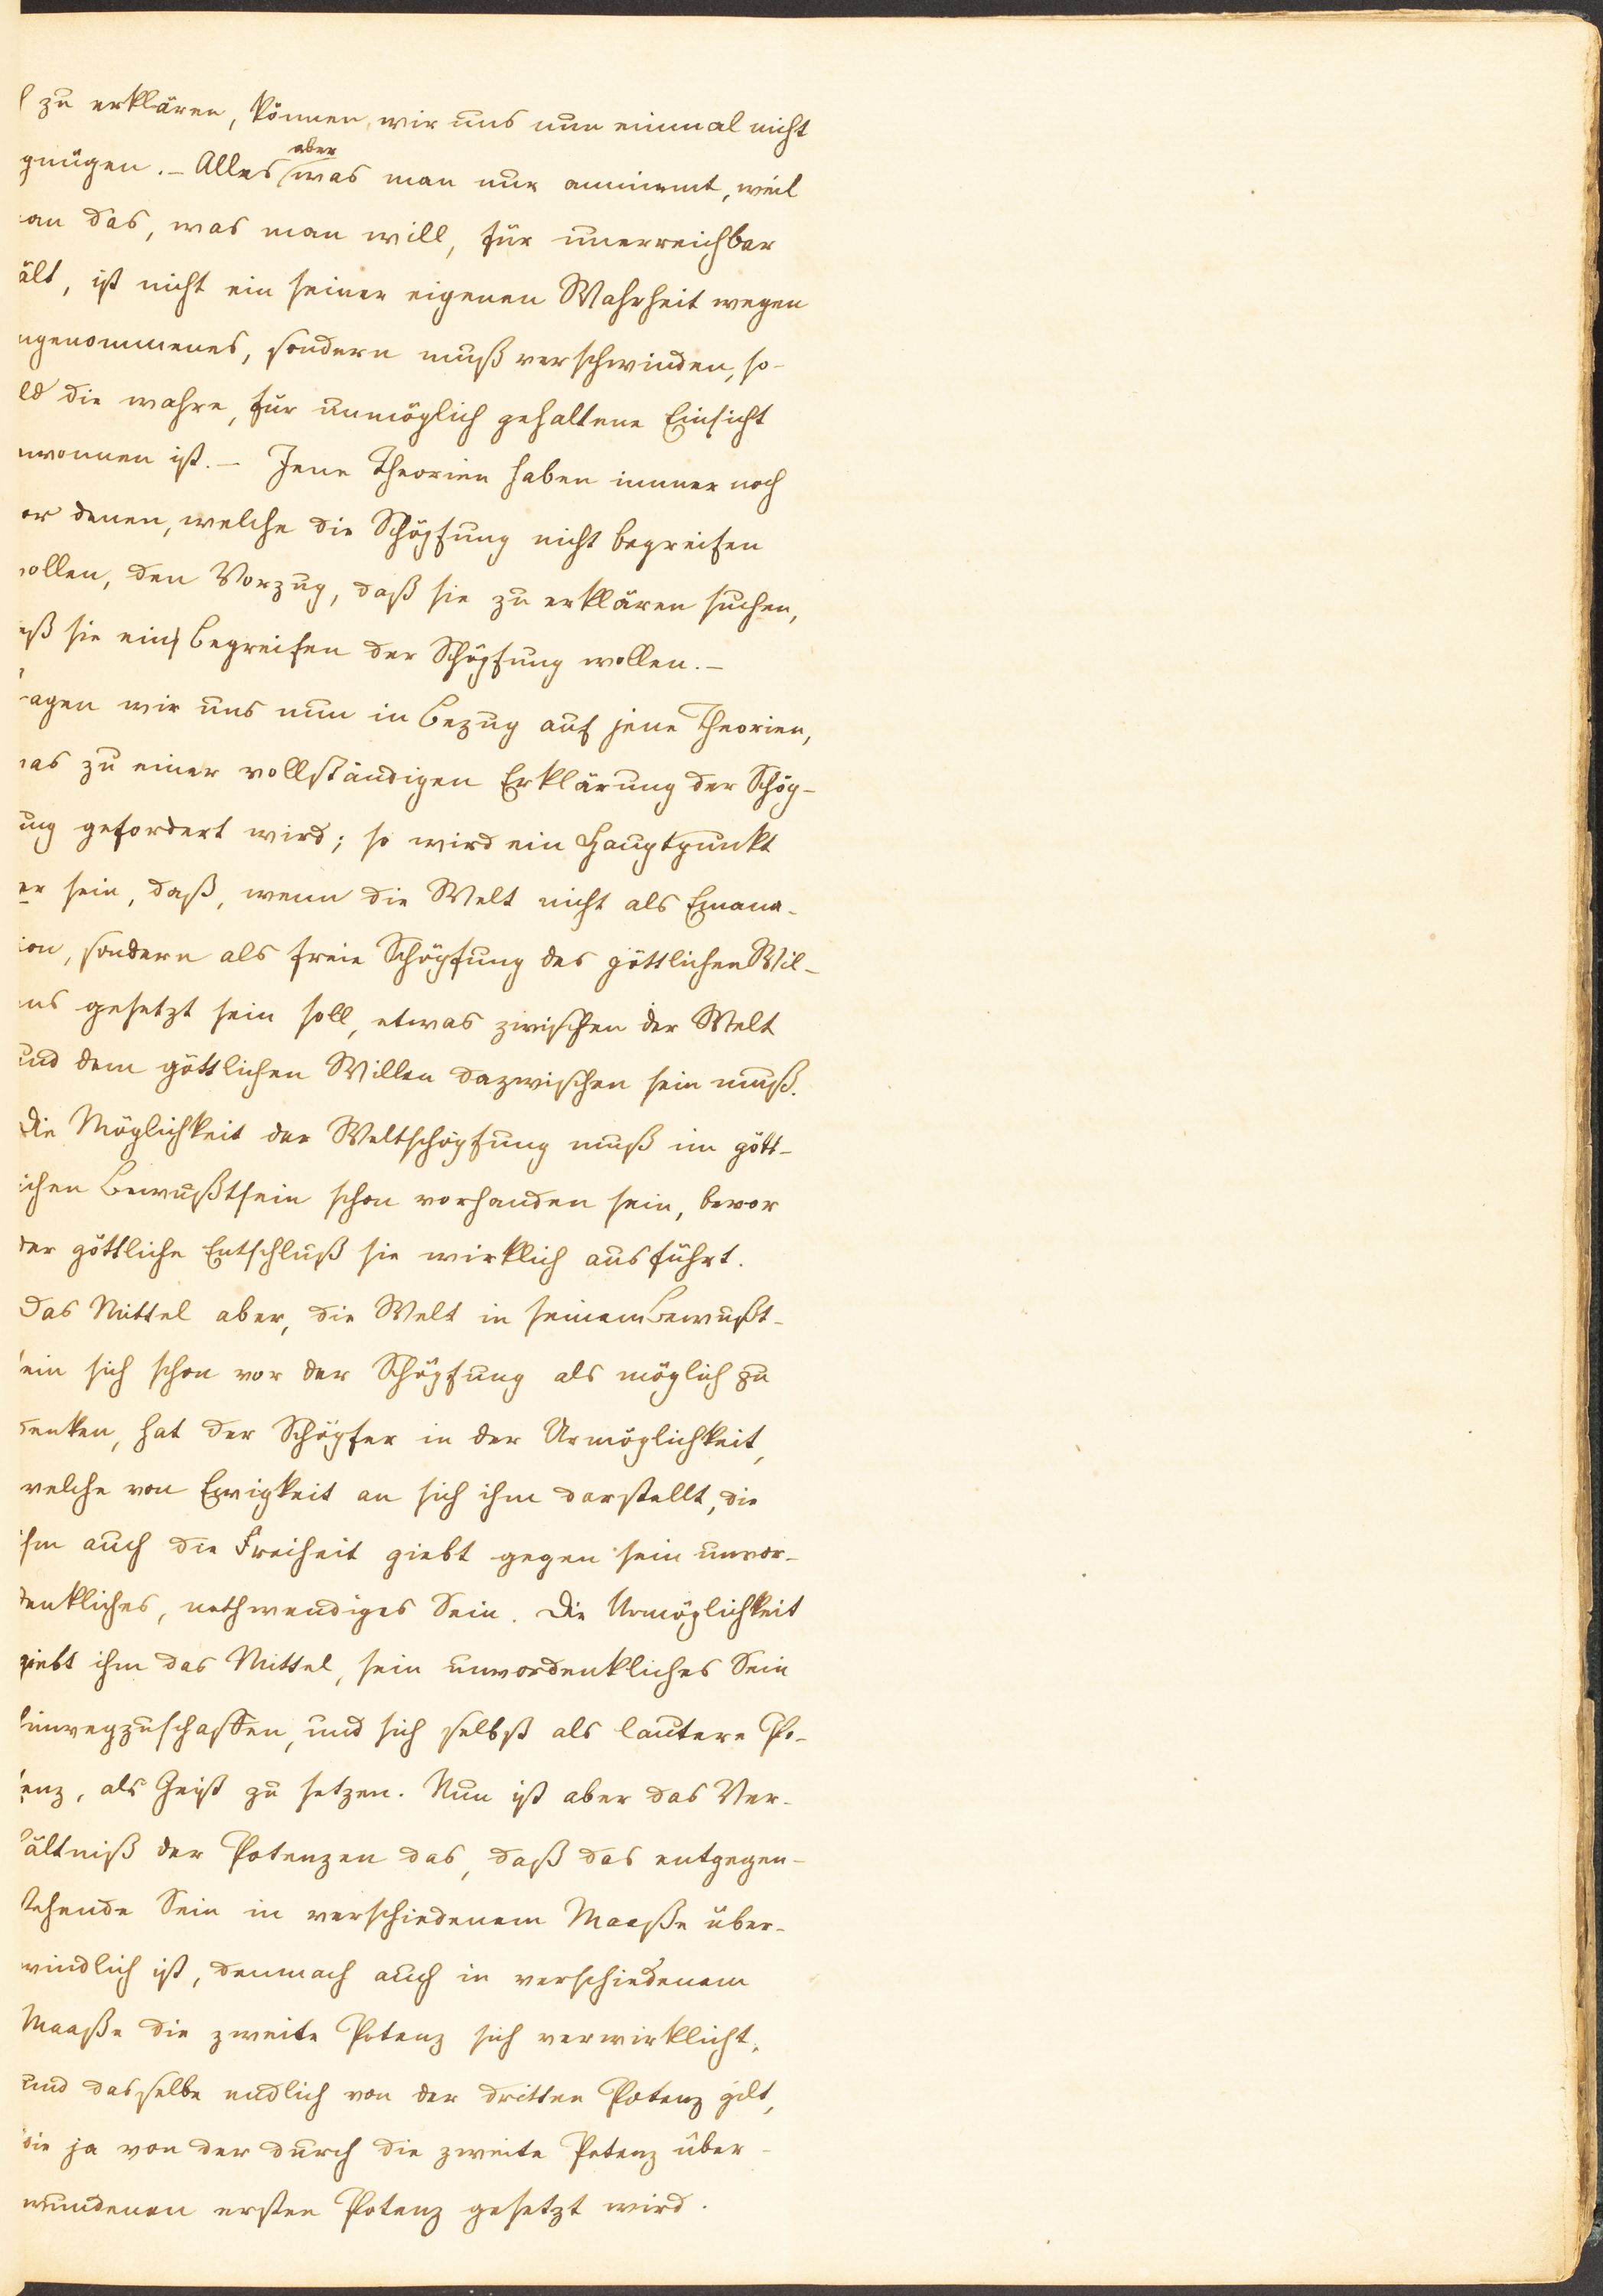 zu erklären, können wir uns nun einmal nicht
gnügen. – Alles aber was man nur annimmt, weil
an das, was man will, für unerreichbar
ält, ist nicht ein seiner eigenen Wahrheit wegen
ngenommenes, sondern muß verschwinden, so-
ld die wahre, für unmöglich gehaltene Einsicht
wonnen ist. – Jene Theorien haben immer noch
or denen, welche die Schöpfung nicht begreifen
ollen, den Vorzug, daß sie zu erklären suchen,
ß sie ein Begreifen der Schöpfung wollen. –
agen wir uns nun in Bezug auf jene Theorien,
as zu einer vollständigen Erklärung der Schöp-
ung gefordert wird; so wird ein Hauptpunkt
er sein, daß, wenn die Welt nicht als Emana-
ion, sondern als freie Schöpfung des göttlichen Wil-
ns gesetzt sein soll, etwas zwischen der Welt
und dem göttlichen Willen dazwischen sein muß.
Die Möglichkeit der Weltschöpfung muß im gött-
ichen Bewußtsein schon vorhanden sein, bevor
der göttliche Entschluß sie wirklich ausführt.
Das Mittel aber, die Welt in seinem Bewußt-
ein sich schon vor der Schöpfung als möglich zu
denken, hat der Schöpfer in der Urmöglichkeit,
welche von Ewigkeit an sich ihm darstellt, die
ihm auch die Freiheit giebt gegen sein unvor-
denkliches, nothwendiges Sein. Die Urmöglichkeit
giebt ihm das Mittel, sein unvordenkliches Sein
hinwegzuschaffen, und sich selbst als lautere Po-
enz, als Geist zu setzen. Nun ist aber das Ver-
hältniß der Potenzen das, daß das entgegen-
stehende Sein in verschiedenem Maaße über-
windlich ist, demnach auch in verschiedenem
Maaße die zweite Potenz sich verwirklicht,
und dasselbe endlich von der dritten Potenz gilt,
die ja von der durch die zweite Potenz über-
wundenen ersten Potenz gesetzt wird.